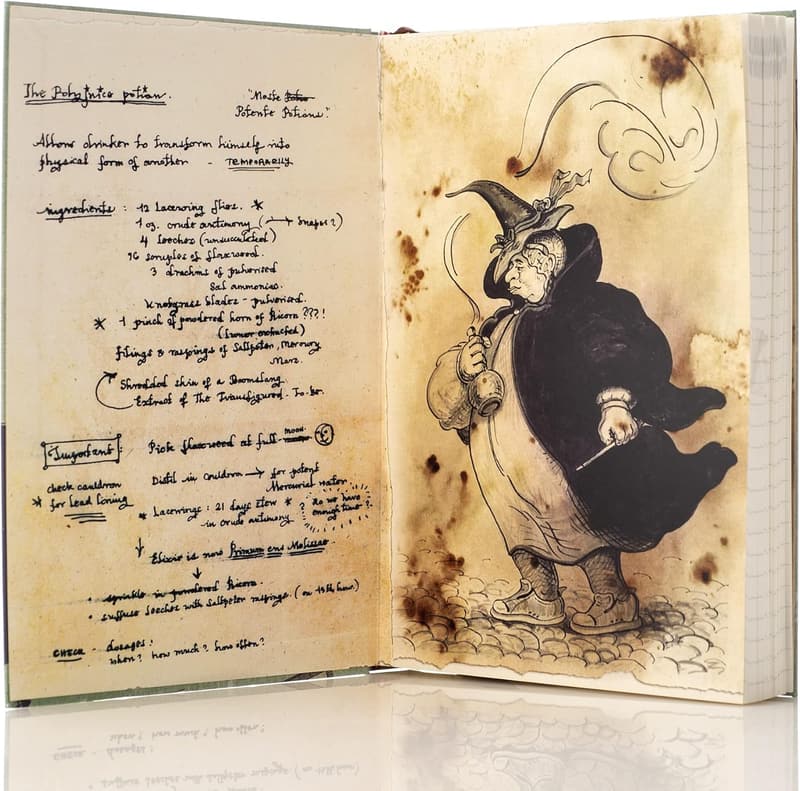 The Polyjuice potion.
"Moste Potente Potions."
Allows drinker to transform himself into
physical form of another - TEMPORARILY
ingredients : 12 Lacewing flies. *
1 oz. crude antimony ( → Snape ? )
4 leeches (unsucculated)
16 scruples of fluxweed.
3 drachms of pulverised
Sal ammoniac.
Knotgrass blades - pulverised.
* 1 pinch of powdered horn of Bicorn ???!
(lunar extracted)
filings & raspings of Saltpeter, Mercury
Mars.
Shredded skin of a Boomslang
Extract of The Transfigured. To-be.
Important : Pick fluxweed at full moon
Distil in cauldron → for potent
Mercurial water
check cauldron
* for lead lining
* Lacewings : 21 days stew *
in crude antimony
? do we have
enough time ?
Elixir is now Primum ens Melissae
• sprinkle in powdered Bicorn.
• suffuse leeches with Saltpeter raspings. (on hour)
CHECK - dosages!
when? how much? how often?